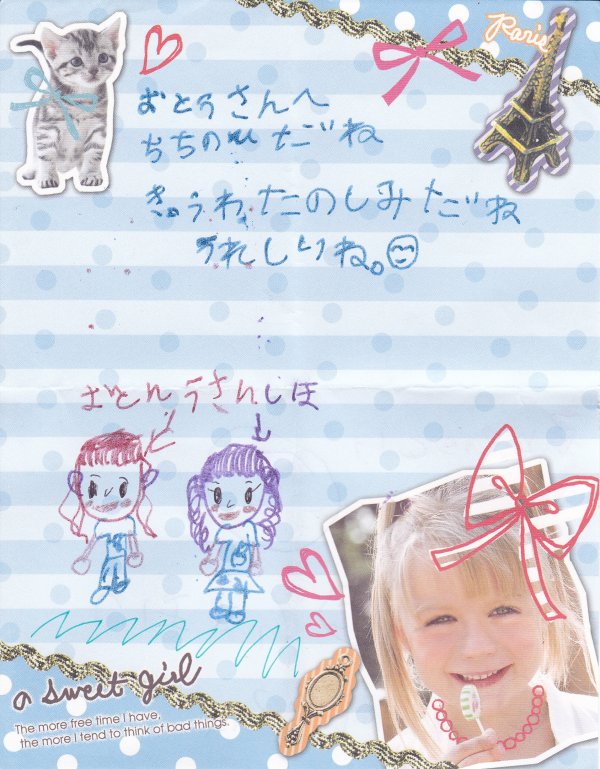 Paris
おとうさんへ
ちちのひだね
きょうわたのしみだね
うれしいね。
おとうさん しほ
a sweet girl
The more free time I have,
the more I tend to think of bad things.